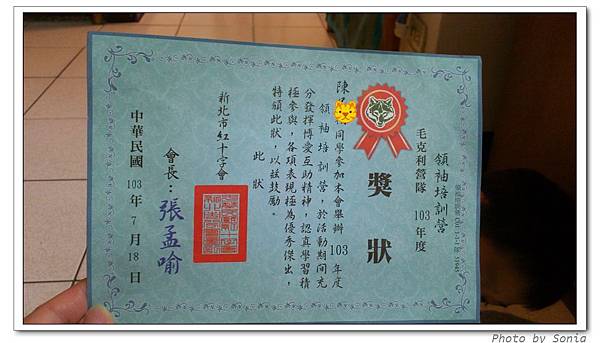 領袖培訓營
毛克利營隊 103 年度
獎狀
陳 同學參加本會舉辦 103 年度
領袖培訓營，於活動期間充
分發揮博愛互助精神，認真學習積
極參與，各項表現極為優秀傑出，
特頒此狀，以茲鼓勵。
此狀
新北市紅十字會
會長：張孟喻
中華民國 103 年 7 月 18 日
Photo by Sonia